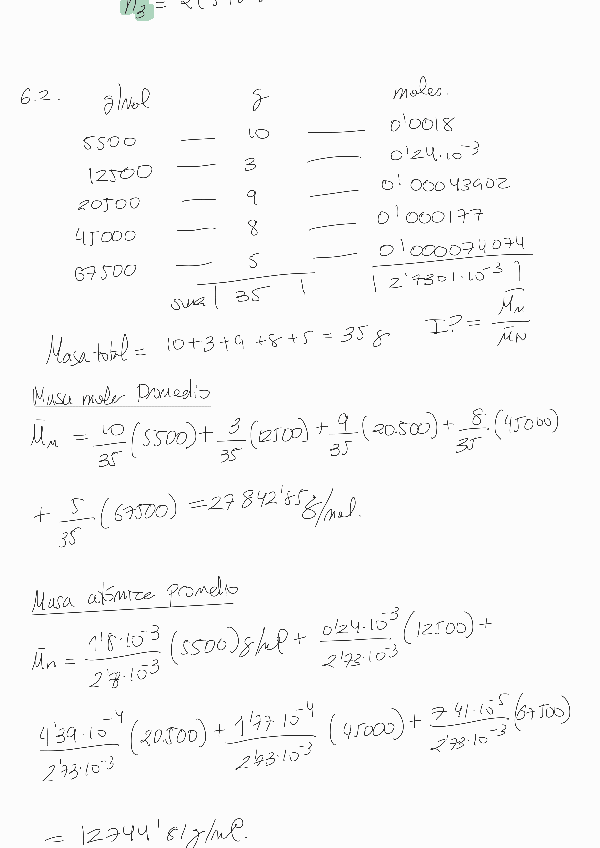 n₃ =
6.2. g/mol g moles.
5500 — 10 — 0'0018
12500 — 3 — 0'24·10⁻³
20500 — 9 — 0'00043902
45000 — 8 — 0'000177
67500 — 5 — 0'000074074
suma | 35 | | 2'7301·10⁻³ |
Masa total = 10+3+9+8+5 = 35 g I? = M̄w/M̄N
Masa molar Promedio
M̄m = 10/35 (5500) + 3/35 (12500) + 9/35·(20.500) + 8/35·(45000)
+ 5/35·(67500) = 27842'85 g/mol.
Masa atómica promedio
M̄n = 1'8·10⁻³/2'73·10⁻³ (5500) g/mol + 0'24·10⁻³/2'73·10⁻³ (12500) +
4'39·10⁻⁴/2'73·10⁻³ (20.500) + 1'77·10⁻⁴/2'73·10⁻³ (45000) + 7'41·10⁻⁵/2'73·10⁻³ (67500)
= 12744'81 g/mol.